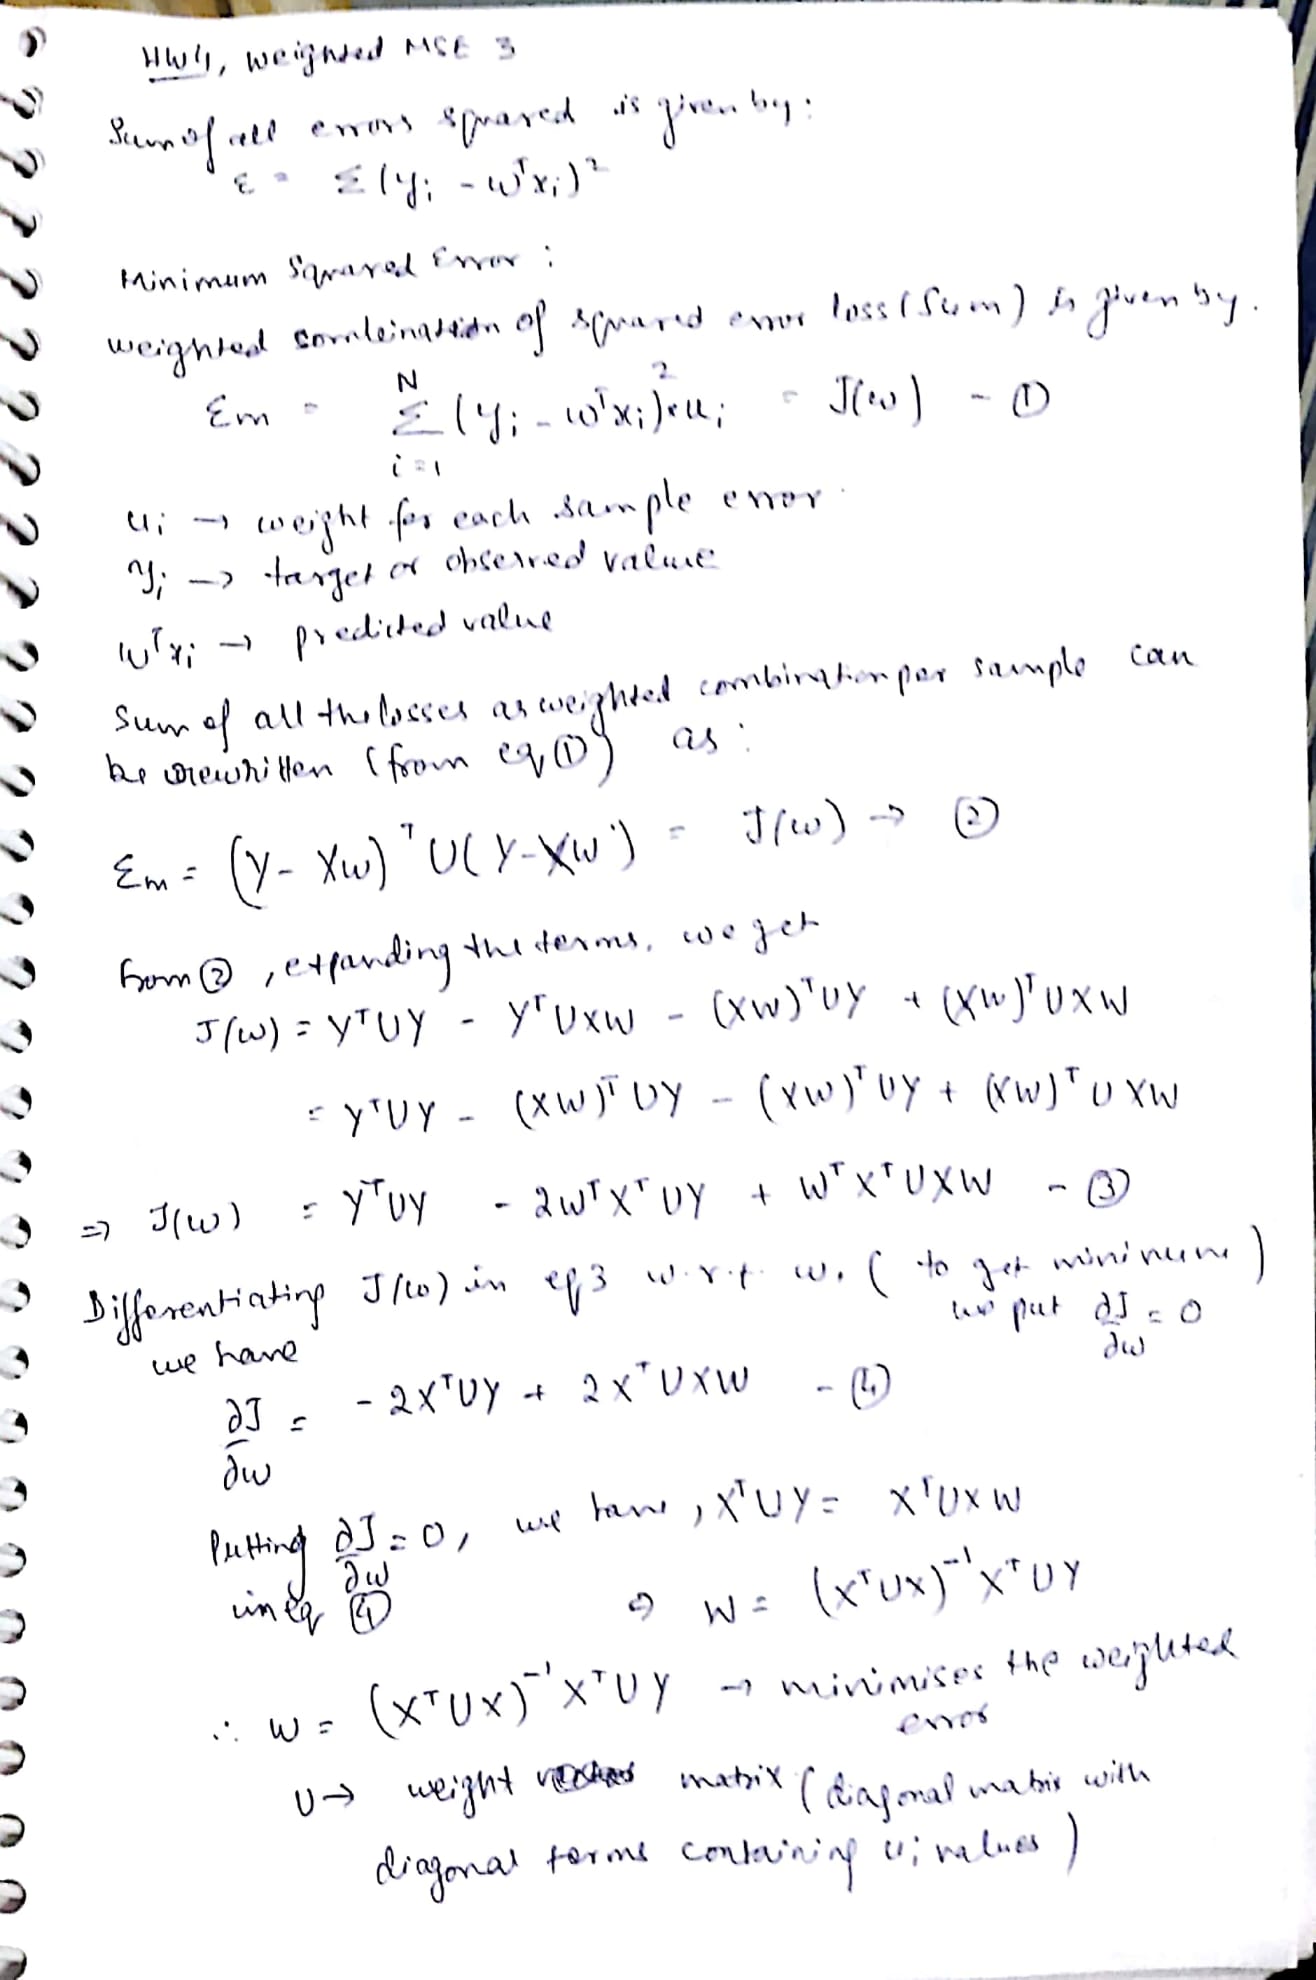 HW4, weighted MSE 3
Sum of all errors squared is given by:
ε = Σ(yᵢ - wᵀxᵢ)²
Minimum Squared Error:
weighted combination of squared error loss (Sum) is given by.
Em = Σᵢ₌₁ᴺ (yᵢ - wᵀxᵢ)² * uᵢ = J(w) - ①
uᵢ → weight for each sample error.
yᵢ → target or observed value
wᵀxᵢ → predicted value
Sum of all the losses as weighted combination per sample can
be rewritten (from eq ①) as:
Em = (Y - Xw)ᵀ U(Y - Xw) = J(w) → ②
from ②, expanding the terms, we get
J(w) = YᵀUY - YᵀUXW - (XW)ᵀUY + (XW)ᵀUXW
= YᵀUY - (XW)ᵀUY - (XW)ᵀUY + (XW)ᵀUXW
⇒ J(w) = YᵀUY - 2WᵀXᵀUY + WᵀXᵀUXW - ③
Differentiating J(w) in eq 3 w.r.t. w. (to get minimum)
we have we put ∂J/∂w = 0
∂J/∂w = -2XᵀUY + 2XᵀUXW - ④
Putting ∂J/∂w = 0, we have, XᵀUY = XᵀUXW
in eq ④ ⇒ W = (XᵀUX)⁻¹XᵀUY
∴ W = (XᵀUX)⁻¹XᵀUY → minimises the weighted
error
U → weight matrix (diagonal matrix with
diagonal terms containing uᵢ values)